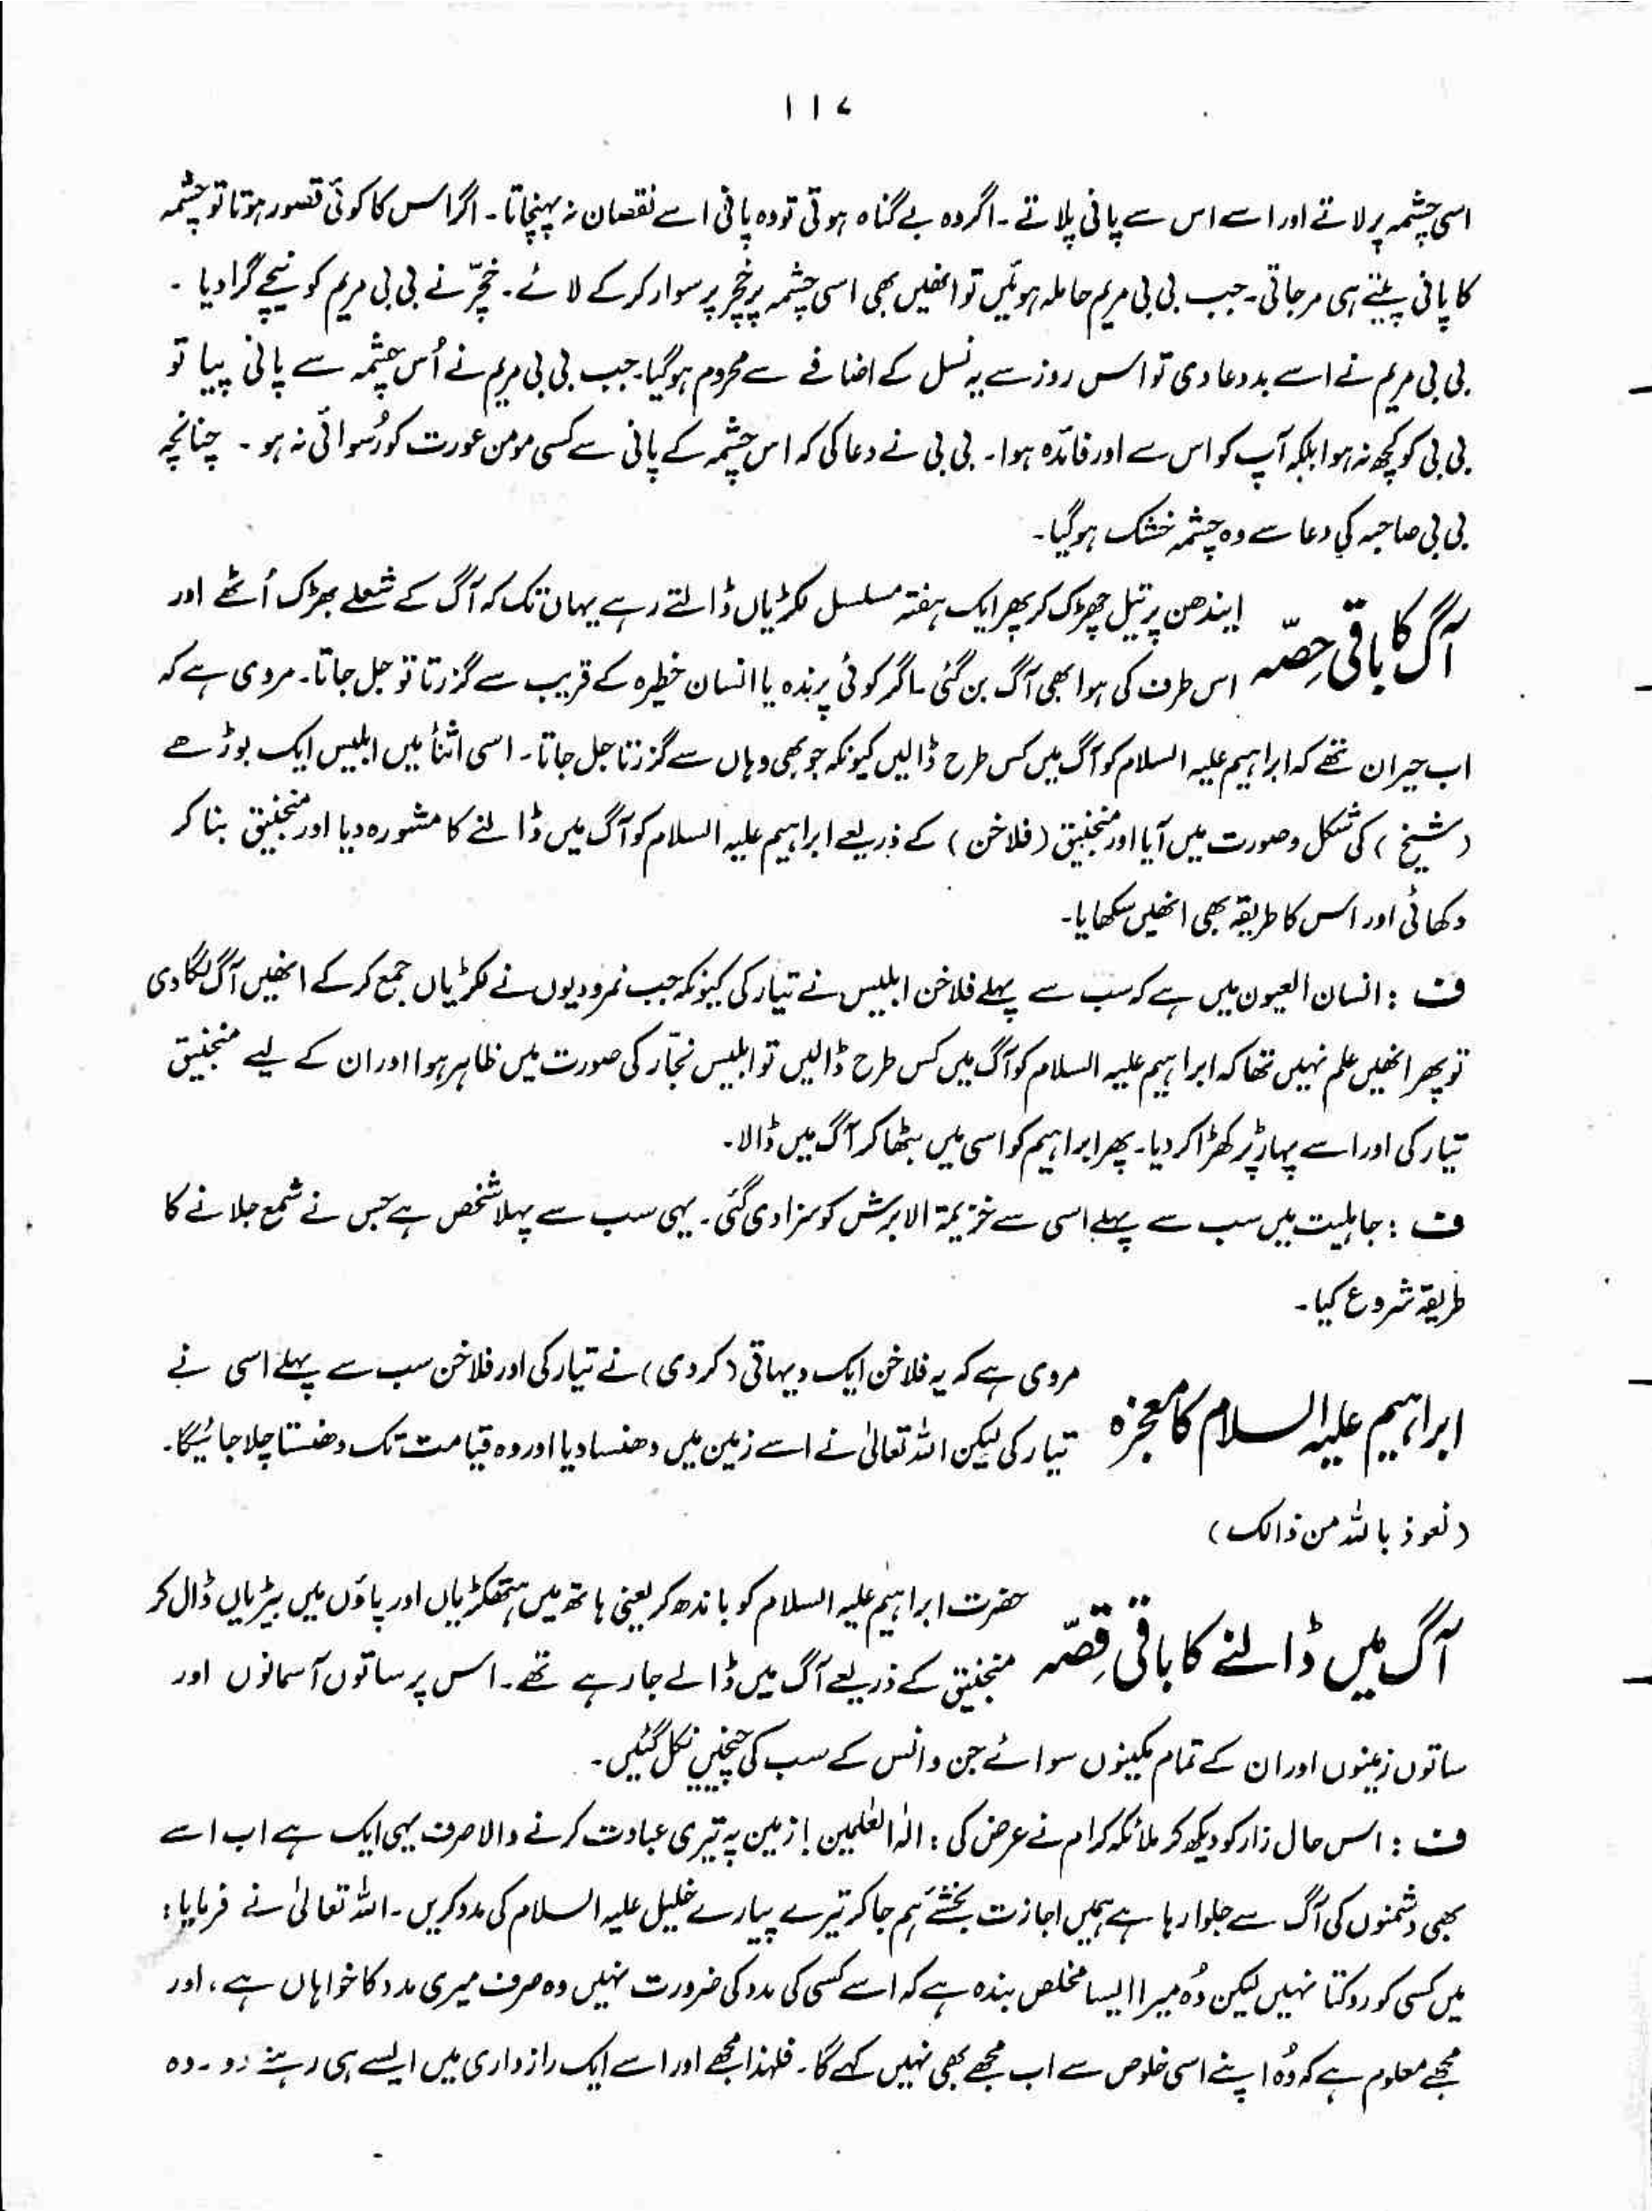 ۱۱۷
اسی چشمہ پر لاتے اور اسے اس سے پانی پلاتے ۔ اگر وہ بے گناہ ہوتی تو وہ پانی اسے نقصان نہ پہنچاتا ۔ اگر اس کا کوئی قصور ہوتا تو چشمہ
کا پانی پیتے ہی مر جاتی ۔ جب بی بی مریم حاملہ ہوئیں تو انھیں بھی اسی چشمہ پر خچر پر سوار کر کے لائے ۔ خچّر نے بی بی مریم کو نیچے گرا دیا ۔
بی بی مریم نے اسے بددعا دی تو اس روز سے یہ نسل کے اضافے سے محروم ہو گیا۔ جب بی بی مریم نے اُس چشمہ سے پانی پیا تو
بی بی کو کچھ نہ ہوا بلکہ آپ کو اس سے اور فائدہ ہوا ۔ بی بی نے دعا کی کہ اس چشمہ کے پانی سے کسی مومن عورت کو رُسوائی نہ ہو ۔ چنانچہ
بی بی صاحبہ کی دعا سے وہ چشمہ خشک ہو گیا ۔
آگ کا باقی حِصّہ ایندھن پر تیل چھڑک کر پھر ایک ہفتہ مسلسل لکڑیاں ڈالتے رہے یہاں تک کہ آگ کے شعلے بھڑک اُٹھے اور
اس طرف کی ہوا بھی آگ بن گئی ۔ اگر کوئی پرندہ یا انسان خطیرہ کے قریب سے گزرتا تو جل جاتا ۔ مروی ہے کہ
اب حیران تھے کہ ابراہیم علیہ السلام کو آگ میں کس طرح ڈالیں کیونکہ جو بھی وہاں سے گزرتا جل جاتا ۔ اسی اثنأ میں ابلیس ایک بوڑھے
(شیخ) کی شکل و صورت میں آیا اور منجنیق (فلاخن) کے ذریعے ابراہیم علیہ السلام کو آگ میں ڈالنے کا مشورہ دیا اور منجنیق بنا کر
دکھائی اور اس کا طریقہ بھی انھیں سکھایا ۔
ف : انسان العیون میں ہے کہ سب سے پہلے فلاخن ابلیس نے تیار کی کیونکہ جب نمرودیوں نے لکڑیاں جمع کر کے انھیں آگ لگا دی
تو پھر انھیں علم نہیں تھا کہ ابراہیم علیہ السلام کو آگ میں کس طرح ڈالیں تو ابلیس نجّار کی صورت میں ظاہر ہوا اور ان کے لیے منجنیق
تیار کی اور اسے پہاڑ پر کھڑا کر دیا ۔ پھر ابراہیم کو اسی میں بٹھا کر آگ میں ڈالا ۔
ف : جاہلیت میں سب سے پہلے اسی سے خزیمۃ الابرش کو سزا دی گئی ۔ یہی سب سے پہلا شخص ہے جس نے شمع جلانے کا
طریقہ شروع کیا ۔
ابراہیم علیہ السلام کا معجزہ مروی ہے کہ یہ فلاخن ایک دیہاتی (کردی) نے تیار کی اور فلاخن سب سے پہلے اسی نے
تیار کی لیکن اللہ تعالیٰ نے اسے زمین میں دھنسا دیا اور وہ قیامت تک دھنستا چلا جائیگا ۔
(نعوذ باللہ من ذالک)
آگ میں ڈالنے کا باقی قِصّہ حضرت ابراہیم علیہ السلام کو باندھ کر یعنی ہاتھ میں ہتھکڑیاں اور پاؤں میں بیڑیاں ڈال کر
منجنیق کے ذریعے آگ میں ڈالے جا رہے تھے ۔ اس پر ساتوں آسمانوں اور
ساتوں زمینوں اور ان کے تمام مکینوں سوائے جن و انس کے سب کی چیخیں نکل گئیں ۔
ف : اس حال زار کو دیکھ کر ملائکہ کرام نے عرض کی : الٰہ العٰلمین ! زمین پہ تیری عبادت کرنے والا صرف یہی ایک ہے اب اسے
بھی دشمنوں کی آگ سے جلوا رہا ہے ہمیں اجازت بخشئے ہم جا کر تیرے پیارے خلیل علیہ السلام کی مدد کریں ۔ اللہ تعالیٰ نے فرمایا :
میں کسی کو روکتا نہیں لیکن وُہ میرا ایسا مخلص بندہ ہے کہ اسے کسی کی مدد کی ضرورت نہیں وہ صرف میری مدد کا خواہاں ہے ، اور
مجھے معلوم ہے کہ وُہ اپنے اسی خلوص سے اب مجھے بھی نہیں کہے گا ۔ فلہٰذا مجھے اور اسے ایک راز داری میں ایسے ہی رہنے دو ۔ وہ